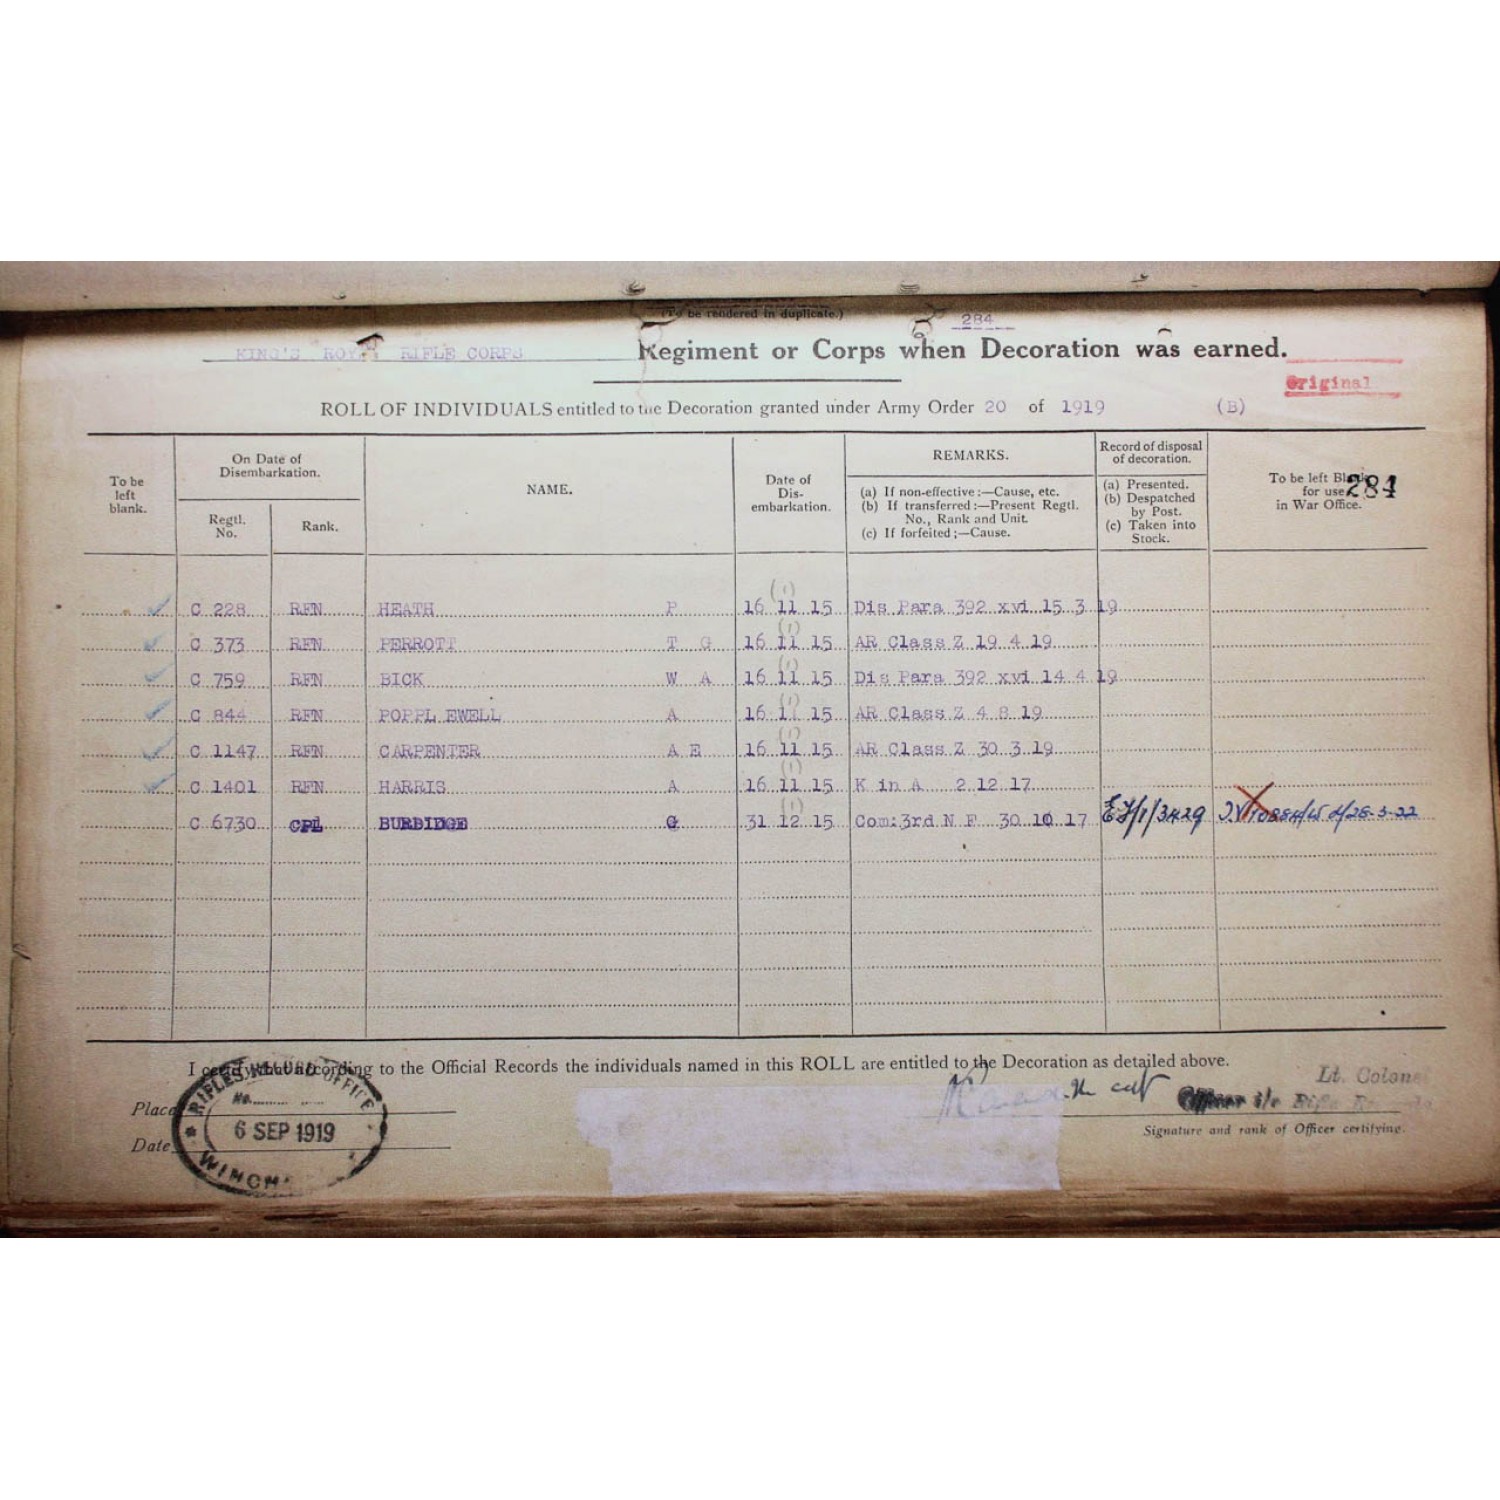 (To be rendered in duplicate.)
284
KING'S ROYAL RIFLE CORPS Regiment or Corps when Decoration was earned.
Original
ROLL OF INDIVIDUALS entitled to the Decoration granted under Army Order 20 of 1919 (B)
To be left blank.
On Date of Disembarkation.
Regtl. No.
Rank.
NAME.
Date of Dis-embarkation.
REMARKS.
(a) If non-effective:—Cause, etc.
(b) If transferred:—Present Regtl. No., Rank and Unit.
(c) If forfeited;—Cause.
Record of disposal of decoration.
(a) Presented.
(b) Despatched by Post.
(c) Taken into Stock.
To be left Blank for use in War Office.
284
C 228 RFN HEATH P 16 11 15 Dis Para 392 xvi 15 3 19
C 373 RFN PERROTT T G 16 11 15 AR Class Z 19 4 19
C 759 RFN BICK W A 16 11 15 Dis Para 392 xvi 14 4 19
C 844 RFN POPPL EWELL A 16 11 15 AR Class Z 4 8 19
C 1147 RFN CARPENTER A E 16 11 15 AR Class Z 30 3 19
C 1401 RFN HARRIS A 16 11 15 K in A 2 12 17
C 6730 CPL BURBIDGE G 31 12 15 Com:3rd N F 30 10 17
I certify that according to the Official Records the individuals named in this ROLL are entitled to the Decoration as detailed above.
Place
Date
RIFLES RECORD OFFICE
No.
6 SEP 1919
Lt. Colonel
Officer i/c Rifle Records
Signature and rank of Officer certifying.